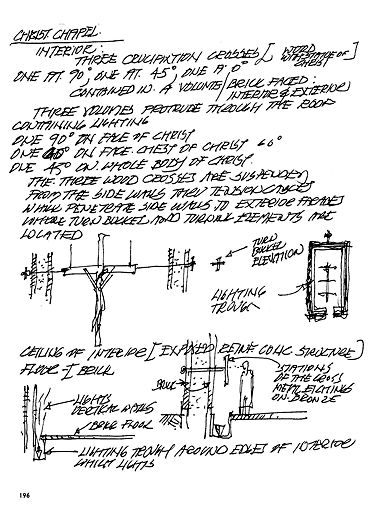 CHRIST CHAPEL.
INTERIOR:
THREE CRUCIFIXTION CROSSES [WOOD WITH STATUE OF CHRIST
ONE AT 90°, ONE AT 45°, ONE A° 0°
CONTAINED IN A VOLUME / BRICK FACED: INTERIOR & EXTERIOR
THREE VOLUMES PROTRUDE THROUGH THE ROOF
CONTAINING LIGHTING
ONE 90° ON FACE OF CHRIST
ONE ON FACE. CHEST OF CHRIST 60°
ONE 45° ON WHOLE BODY OF CHRIST.
THE THREE WOOD CROSSES ARE SUSPENDED
FROM THE SIDE WALLS THRU TENSION CABLES
WHICH PENETRATE SIDE WALLS TO EXTERIOR FACADES
WHERE TURN BUCKEL AND TURNING ELEMENTS ARE
LOCATED
TURN
BUCKEL
ELEVATION
LIGHTING
TROUGH
CEILING OF INTERIOR [EXPOSED REINF CONC. STRUCTURE]
FLOOR - BRICK
STATIONS
OF THE CROSS
METAL ETCHINGS
ON BRONZE
BRICK
LIGHTS
VERTICAL WALLS
BRICK FLOOR
LIGHTING TROUGH AROUND EDGES OF INTERIOR
WHILST LIGHTS
196